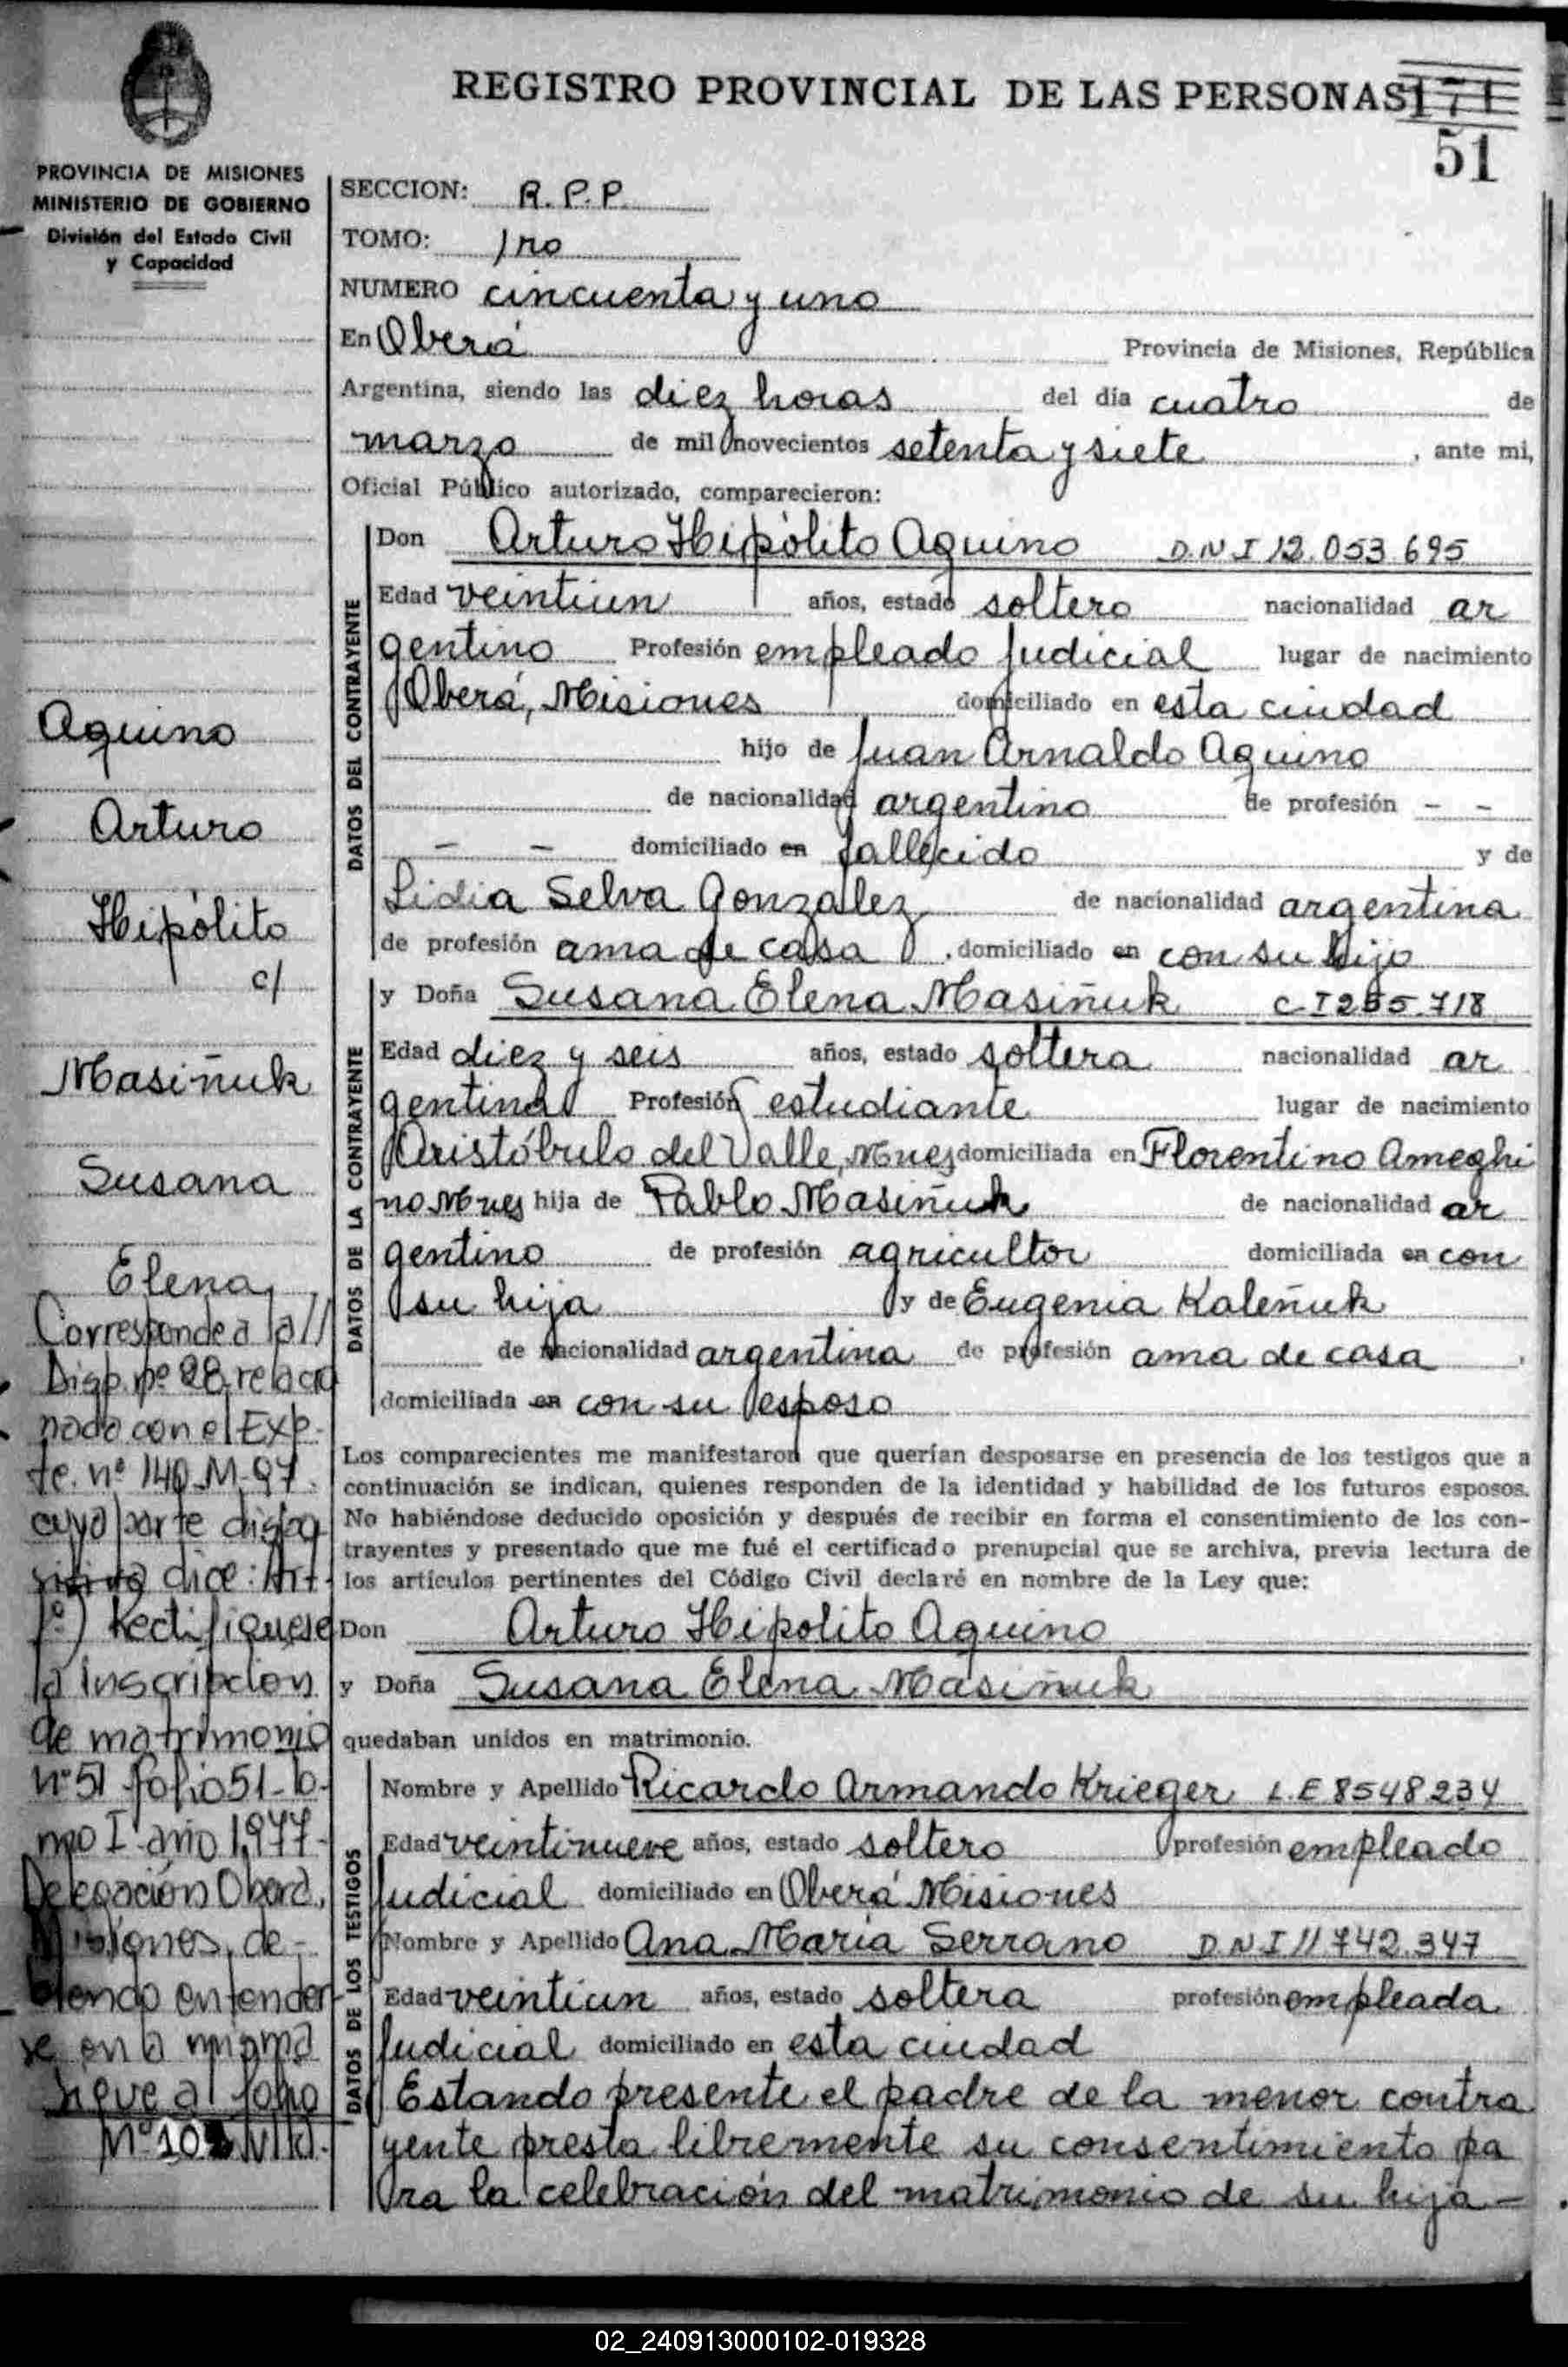 REGISTRO PROVINCIAL DE LAS PERSONAS 171
51
PROVINCIA DE MISIONES
MINISTERIO DE GOBIERNO
División del Estado Civil
y Capacidad
SECCION: R.P.P.
TOMO: 1ro
NUMERO cincuenta y uno
En Oberá Provincia de Misiones, República
Argentina, siendo las diez horas del día cuatro de
marzo de mil novecientos setenta y siete, ante mi,
Oficial Público autorizado, comparecieron:
DATOS DEL CONTRAYENTE
Don Arturo Hipólito Aquino D.N.I 12.053.695
Edad veintiun años, estado soltero nacionalidad ar
gentino Profesión empleado judicial lugar de nacimiento
Oberá, Misiones domiciliado en esta ciudad
hijo de Juan Arnaldo Aquino
de nacionalidad argentino de profesión - -
- - domiciliado en fallecido y de
Lidia Selva Gonzalez de nacionalidad argentina
de profesión ama de casa, domiciliado en con su hijo
DATOS DE LA CONTRAYENTE
y Doña Susana Elena Masiñuk C.I 255.718
Edad diez y seis años, estado soltera nacionalidad ar
gentina Profesión estudiante lugar de nacimiento
Aristóbulo del Valle, Mnes domiciliada en Florentino Ameghi
no Mnes hija de Pablo Masiñuk de nacionalidad ar
gentino de profesión agricultor domiciliada en con
su hija y de Eugenia Kaleñuk
de nacionalidad argentina de profesión ama de casa,
domiciliada en con su esposo
Los comparecientes me manifestaron que querían desposarse en presencia de los testigos que a
continuación se indican, quienes responden de la identidad y habilidad de los futuros esposos.
No habiéndose deducido oposición y después de recibir en forma el consentimiento de los con-
trayentes y presentado que me fué el certificado prenupcial que se archiva, previa lectura de
los artículos pertinentes del Código Civil declaré en nombre de la Ley que:
Don Arturo Hipolito Aquino
y Doña Susana Elena Masiñuk
quedaban unidos en matrimonio.
DATOS DE LOS TESTIGOS
Nombre y Apellido Ricardo Armando Krieger L.E 8548234
Edad veintinueve años, estado soltero profesión empleado
judicial domiciliado en Oberá Misiones
Nombre y Apellido Ana Maria Serrano D.N.I 11742.347
Edad veintiun años, estado soltera profesión empleada
judicial domiciliado en esta ciudad
Estando presente el padre de la menor contra
yente presta libremente su consentimiento pa
ra la celebración del matrimonio de su hija -
Aquino
Arturo
Hipólito
c/
Masiñuk
Susana
Elena
Corresponde a la //
Disp. nº 28 relacio
nada con el Exp-
te. nº 140 M-97.
cuya parte dispo
sitiva dice: Art.
1º) Rectifiquese
la inscripcion
de matrimonio
nº 51 folio 51-to-
mo I año 1.977-
Delegación Oberá,
Misiones, de-
biendo entender
se en la misma
sigue al folio
Nº 10
02_240913000102-019328